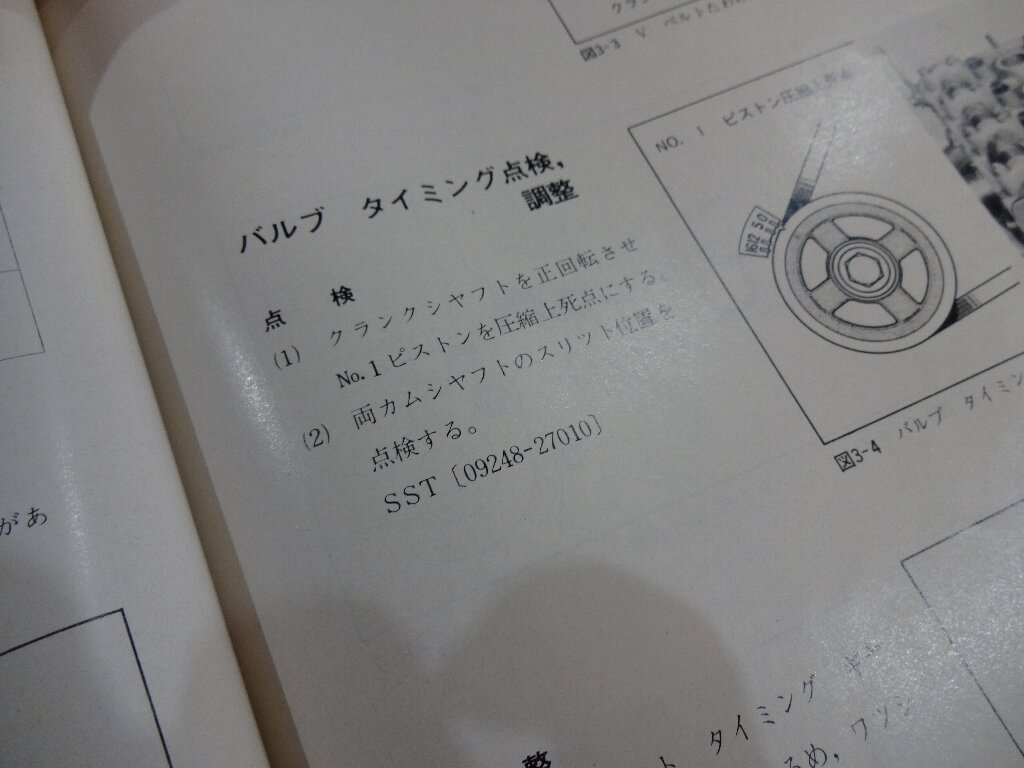 クラン
図3-3 V ベルトたわ
バルブ タイミング点検,
調整
点検
(1) クランクシャフトを正回転させ
No.1ピストンを圧縮上死点にする。
(2) 両カムシャフトのスリット位置を
点検する。
SST〔09248-27010〕
NO. 1 ピストン圧縮上死点
図3-4 バルブ タイミン
があ
整
ト タイミング ギヤ
るめ, ワッシ